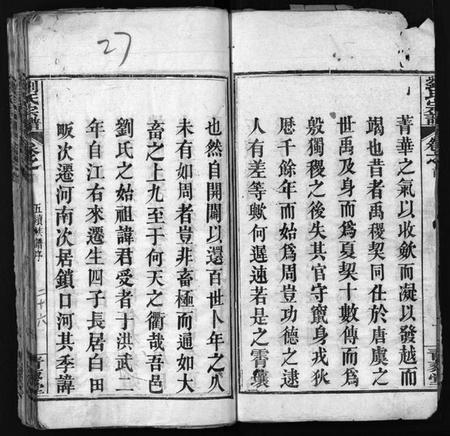 劉氏宗譜
菁華之氣以收歛而凝以發越而
竭也昔者禹稷契同仕於唐虞之
世禹及身而為夏契十數傳而為
殷獨稷之後失其官守竄身戎狄
歷千餘年而始為周豈功德之逮
人有差等歟何遲速若是之霄壤
27
也然自開闢以還百世卜年之久
未有如周者豈非畜極而通如大
畜之上九至于何天之衢哉吾邑
劉氏之始祖諱君受者于洪武二
年自江右來遷生四子長居白田
畈次遷河南次居鎖口河其季諱
劉氏宗譜
五續修譜序
二十六